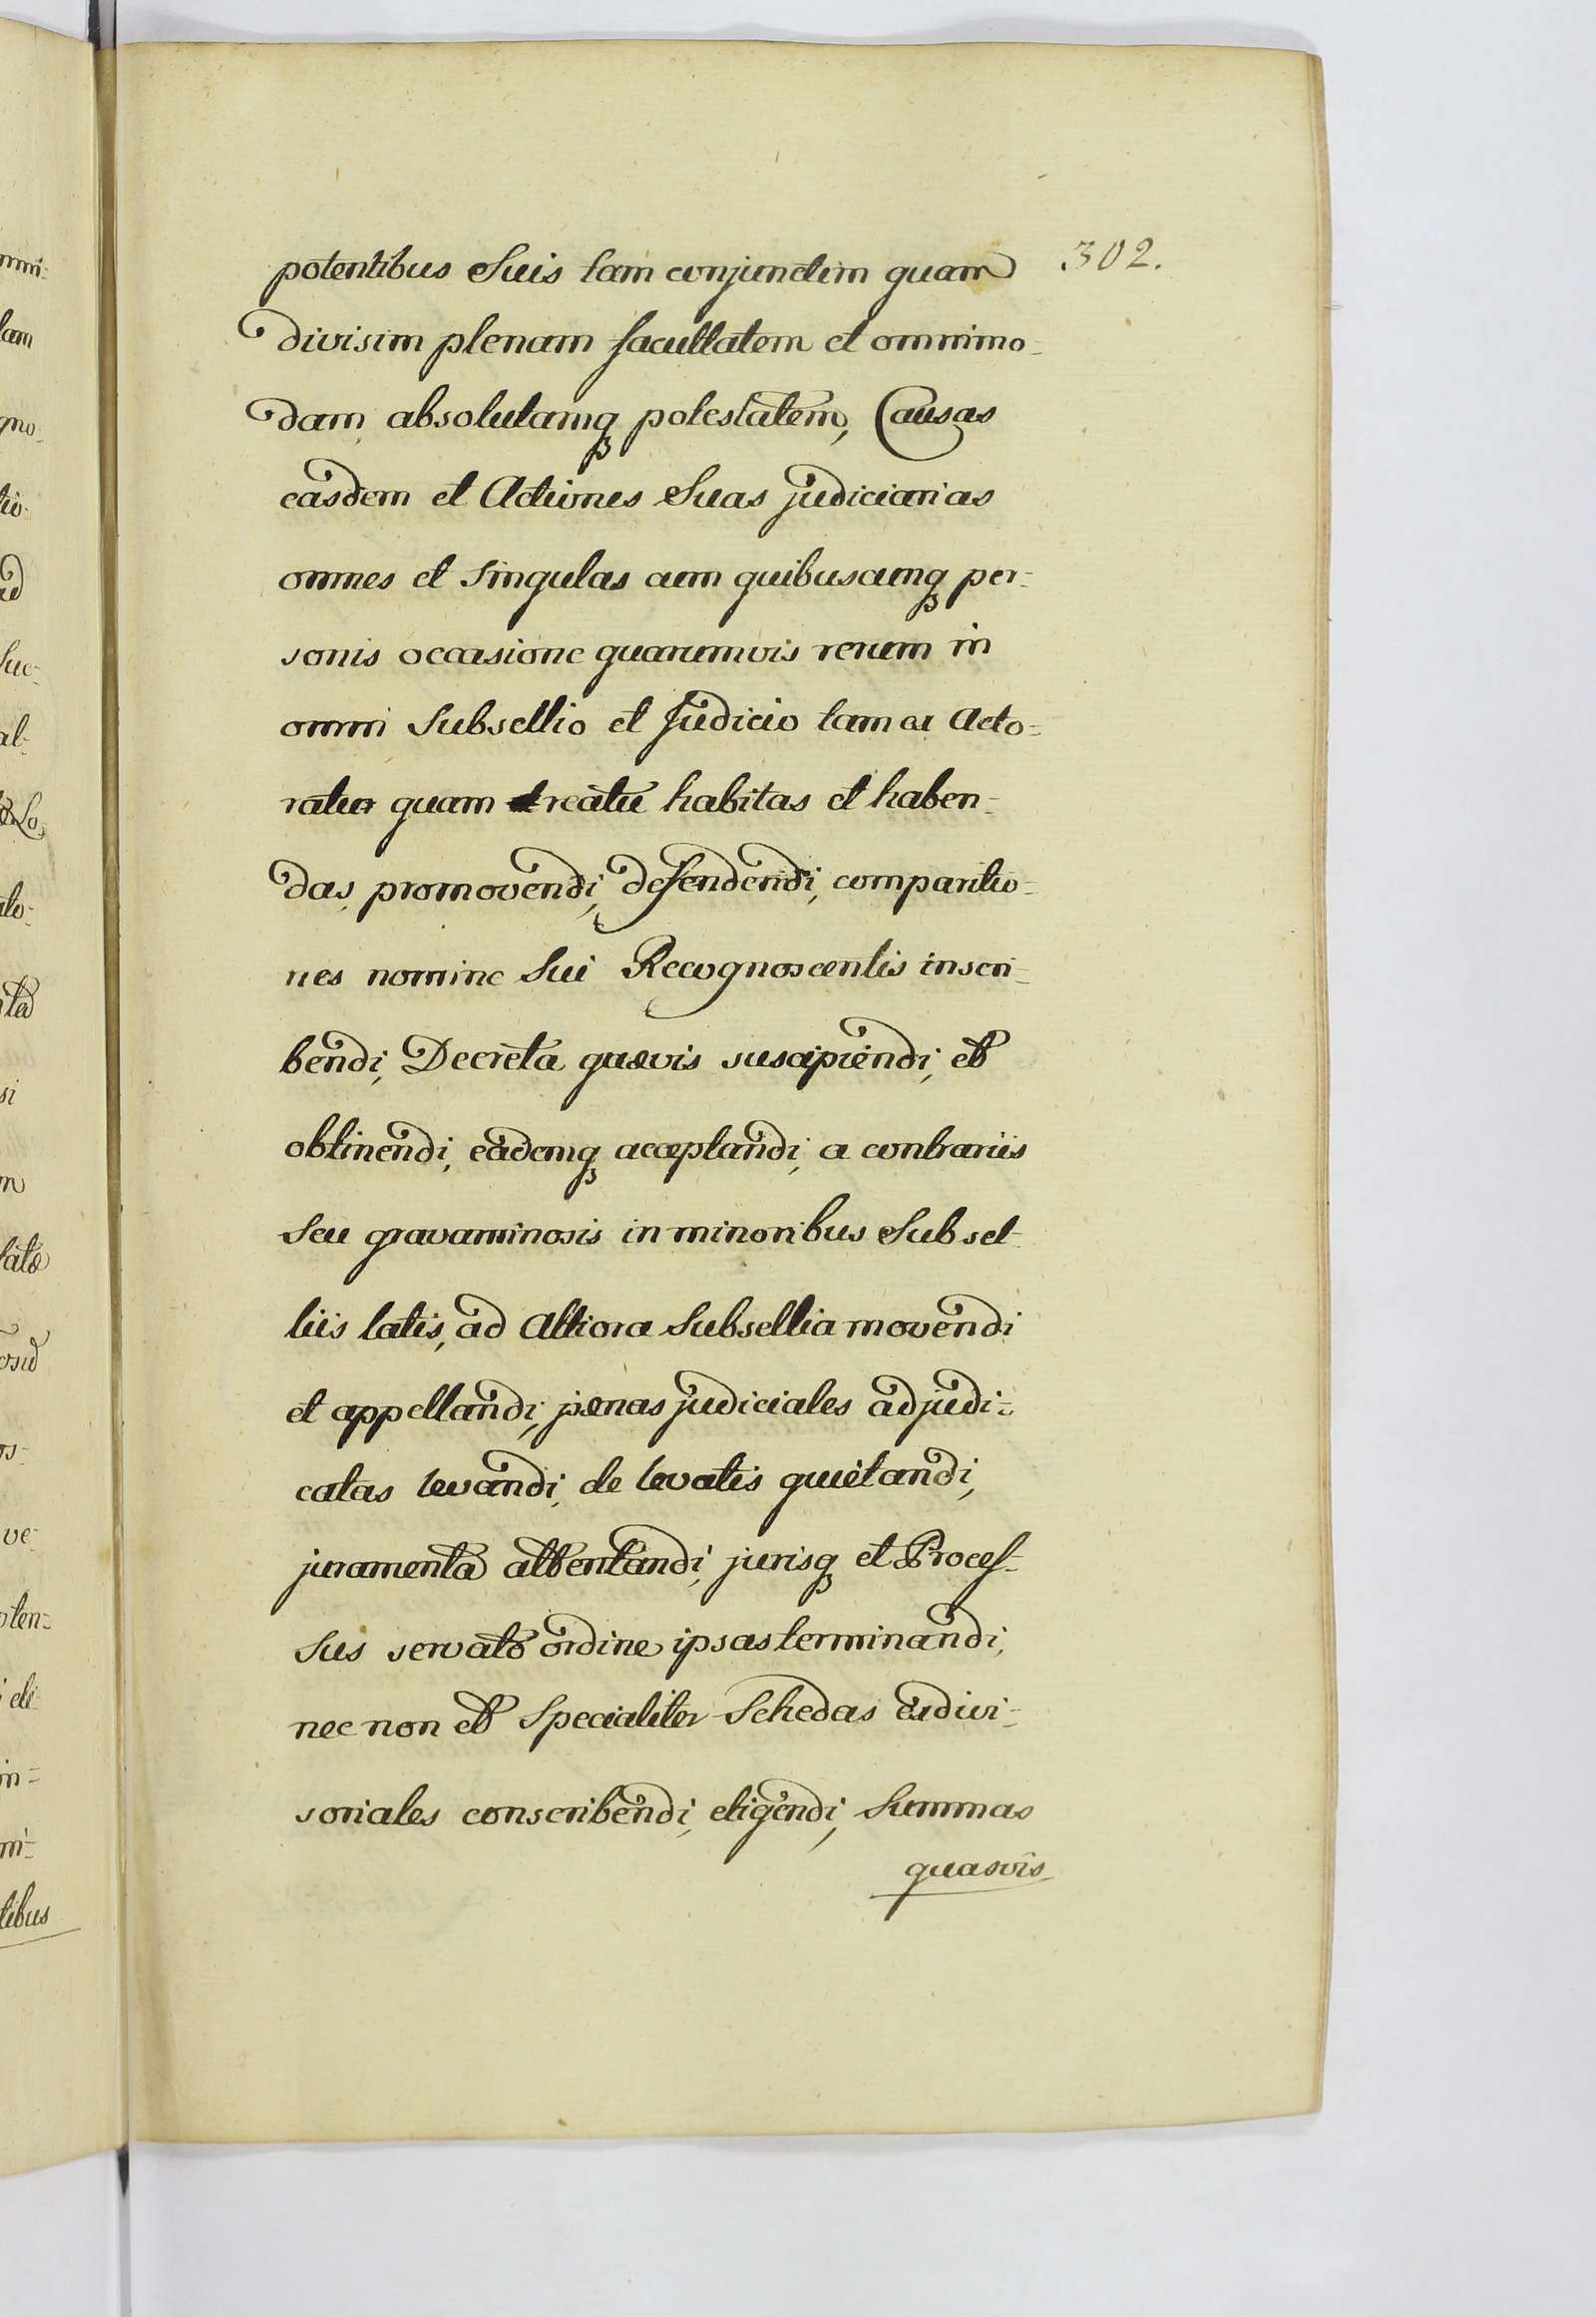 302.
potentibus Suis tam conjunctim quam
divisim plenam facultatem et omnimo-
dam, absolutamq potestatem, Causas
easdem et Actiones Suas judiciarias
omnes et singulas cum quibuscunq per-
sonis occasione quarumvis rerum in
omni Subsellio et Judicio tam ex Acto-
ratu quam reatu habitas et haben-
das, promovendi, defendendi, comparitio-
nes nomine Sui Recognoscentis inscri-
bendi, Decreta quævis suscipiendi, et
obtinendi, eademq acceptandi, a contrariis
seu gravaminosis in minoribus Subsel-
liis latis, ad Altiora Subsellia movendi
et appellandi, pænas judiciales adjudi-
catas levandi, de levatis quietandi,
juramenta attentandi, jurisq et Proces-
sus servato ordine ipsas terminandi,
nec non et Specialiter Schedas exdivi-
soriales conscribendi, eligendi, Summas
quasvis
mni-
lam
gno-
tio-
ad
Suc-
al-
Lo-
ato-
si
m
os-
ve-
oten-
eli-
in-
mi-
tibus